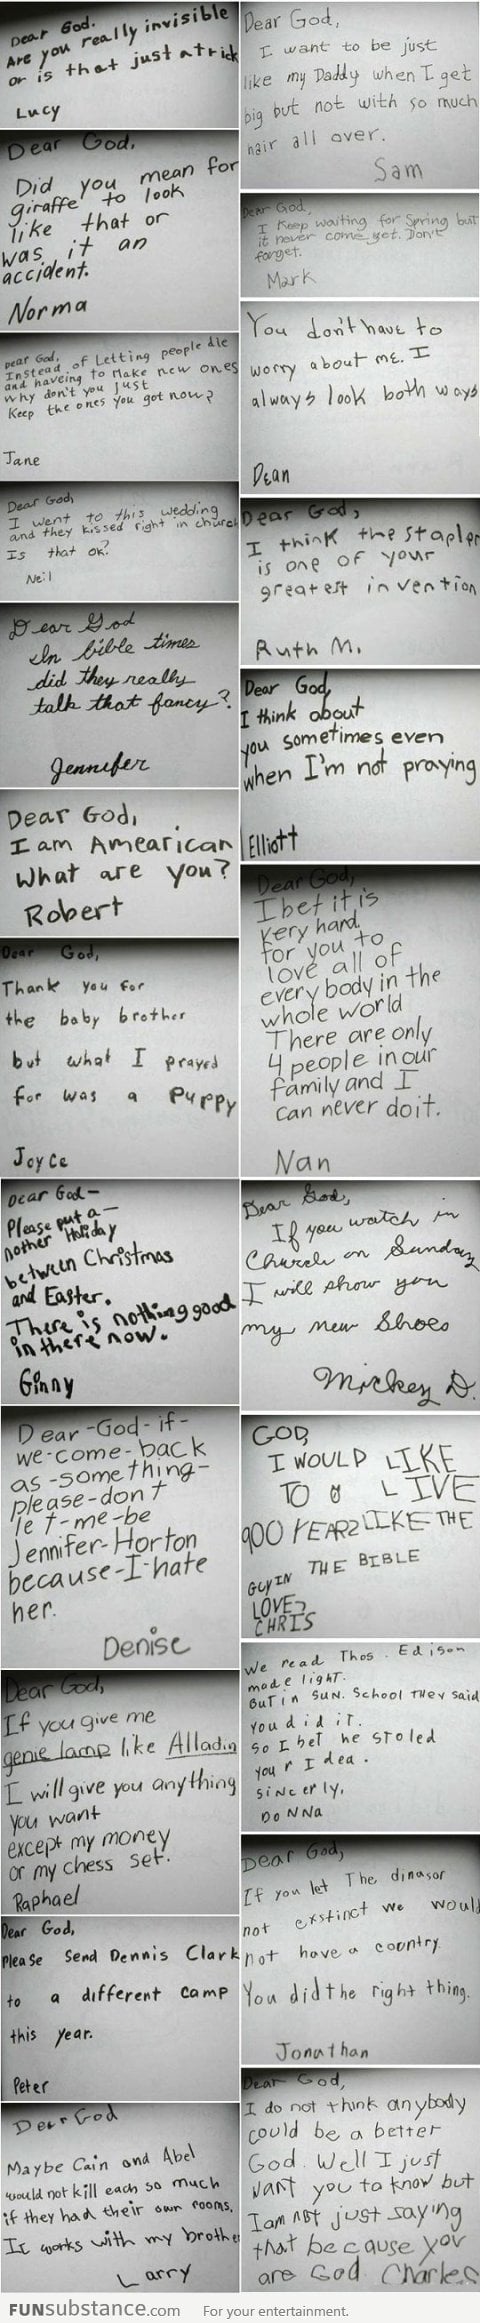 Dear God.
Are you really invisible
or is that just a trick
Lucy
Dear God,
Did you mean for
giraffe to look
like that or
was it an
accident.
Norma
Dear God,
Instead of Letting people die
and haveing to Make new ones
why don't you Just
Keep the ones you got now?
Jane
Dear God,
I went to this wedding
and they kissed right in church
Is that ok?
Neil
Dear God
In bible times
did they really
talk that fancy?
Jennifer
Dear God,
I am Amearican
What are you?
Robert
Dear God,
Thank you for
the baby brother
but what I prayed
for was a puppy
Joyce
Dear God—
Please put a—
nother Holiday
between Christmas
and Easter.
There is nothing good
in there now.
Ginny
Dear-God-if-
we-come-back
as-something-
please-don't
let-me-be
Jennifer-Horton
because-I-hate
her.
Denise
Dear God,
If you give me
genie lamp like Alladin
I will give you anything
you want
except my money
or my chess set.
Raphael
Dear God,
Please Send Dennis Clark
to a different camp
this year.
Peter
Dear God
Maybe Cain and Abel
would not kill each so much
if they had their own rooms.
It works with my brother
Larry
Dear God,
I want to be just
like my Daddy when I get
big but not with so much
hair all over.
Sam
Dear God,
I Keep waiting for Spring but
it never come yet. Don't
forget.
Mark
You don't have to
worry about me. I
always look both ways
Dean
Dear God,
I think the stapler
is one of your
greatest invention
Ruth M.
Dear God,
I think about
you sometimes even
when I'm not praying
Elliott
Dear God,
I bet it is
very hard
for you to
love all of
every body in the
whole world
There are only
4 people in our
family and I
can never do it.
Nan
Dear God,
If you watch in
Church on Sunday
I will show you
my new Shoes
Mickey D.
GOD,
I WOULD LIKE
TO LIVE
900 YEARS LIKE THE
GUY IN THE BIBLE
LOVE,
CHRIS
We read Thos. Edison
made light.
But in Sun. School They said
you did it.
So I bet he stoled
your Idea.
Sincerly,
Donna
Dear God,
If you let The dinasor
not exstinct we would
not have a country.
You did the right thing.
Jonathan
Dear God,
I do not think anybody
could be a better
God. Well I just
want you to know but
I am not just saying
that because you
are God. Charles
FUNsubstance.com For your entertainment.